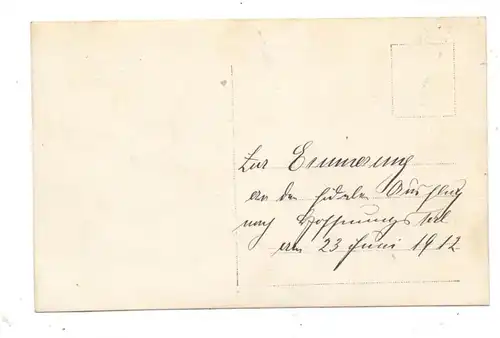 Zur Erinnerung
an den fidelen Ausflug
nach Hoffnungstal
am 23 Juni 1912